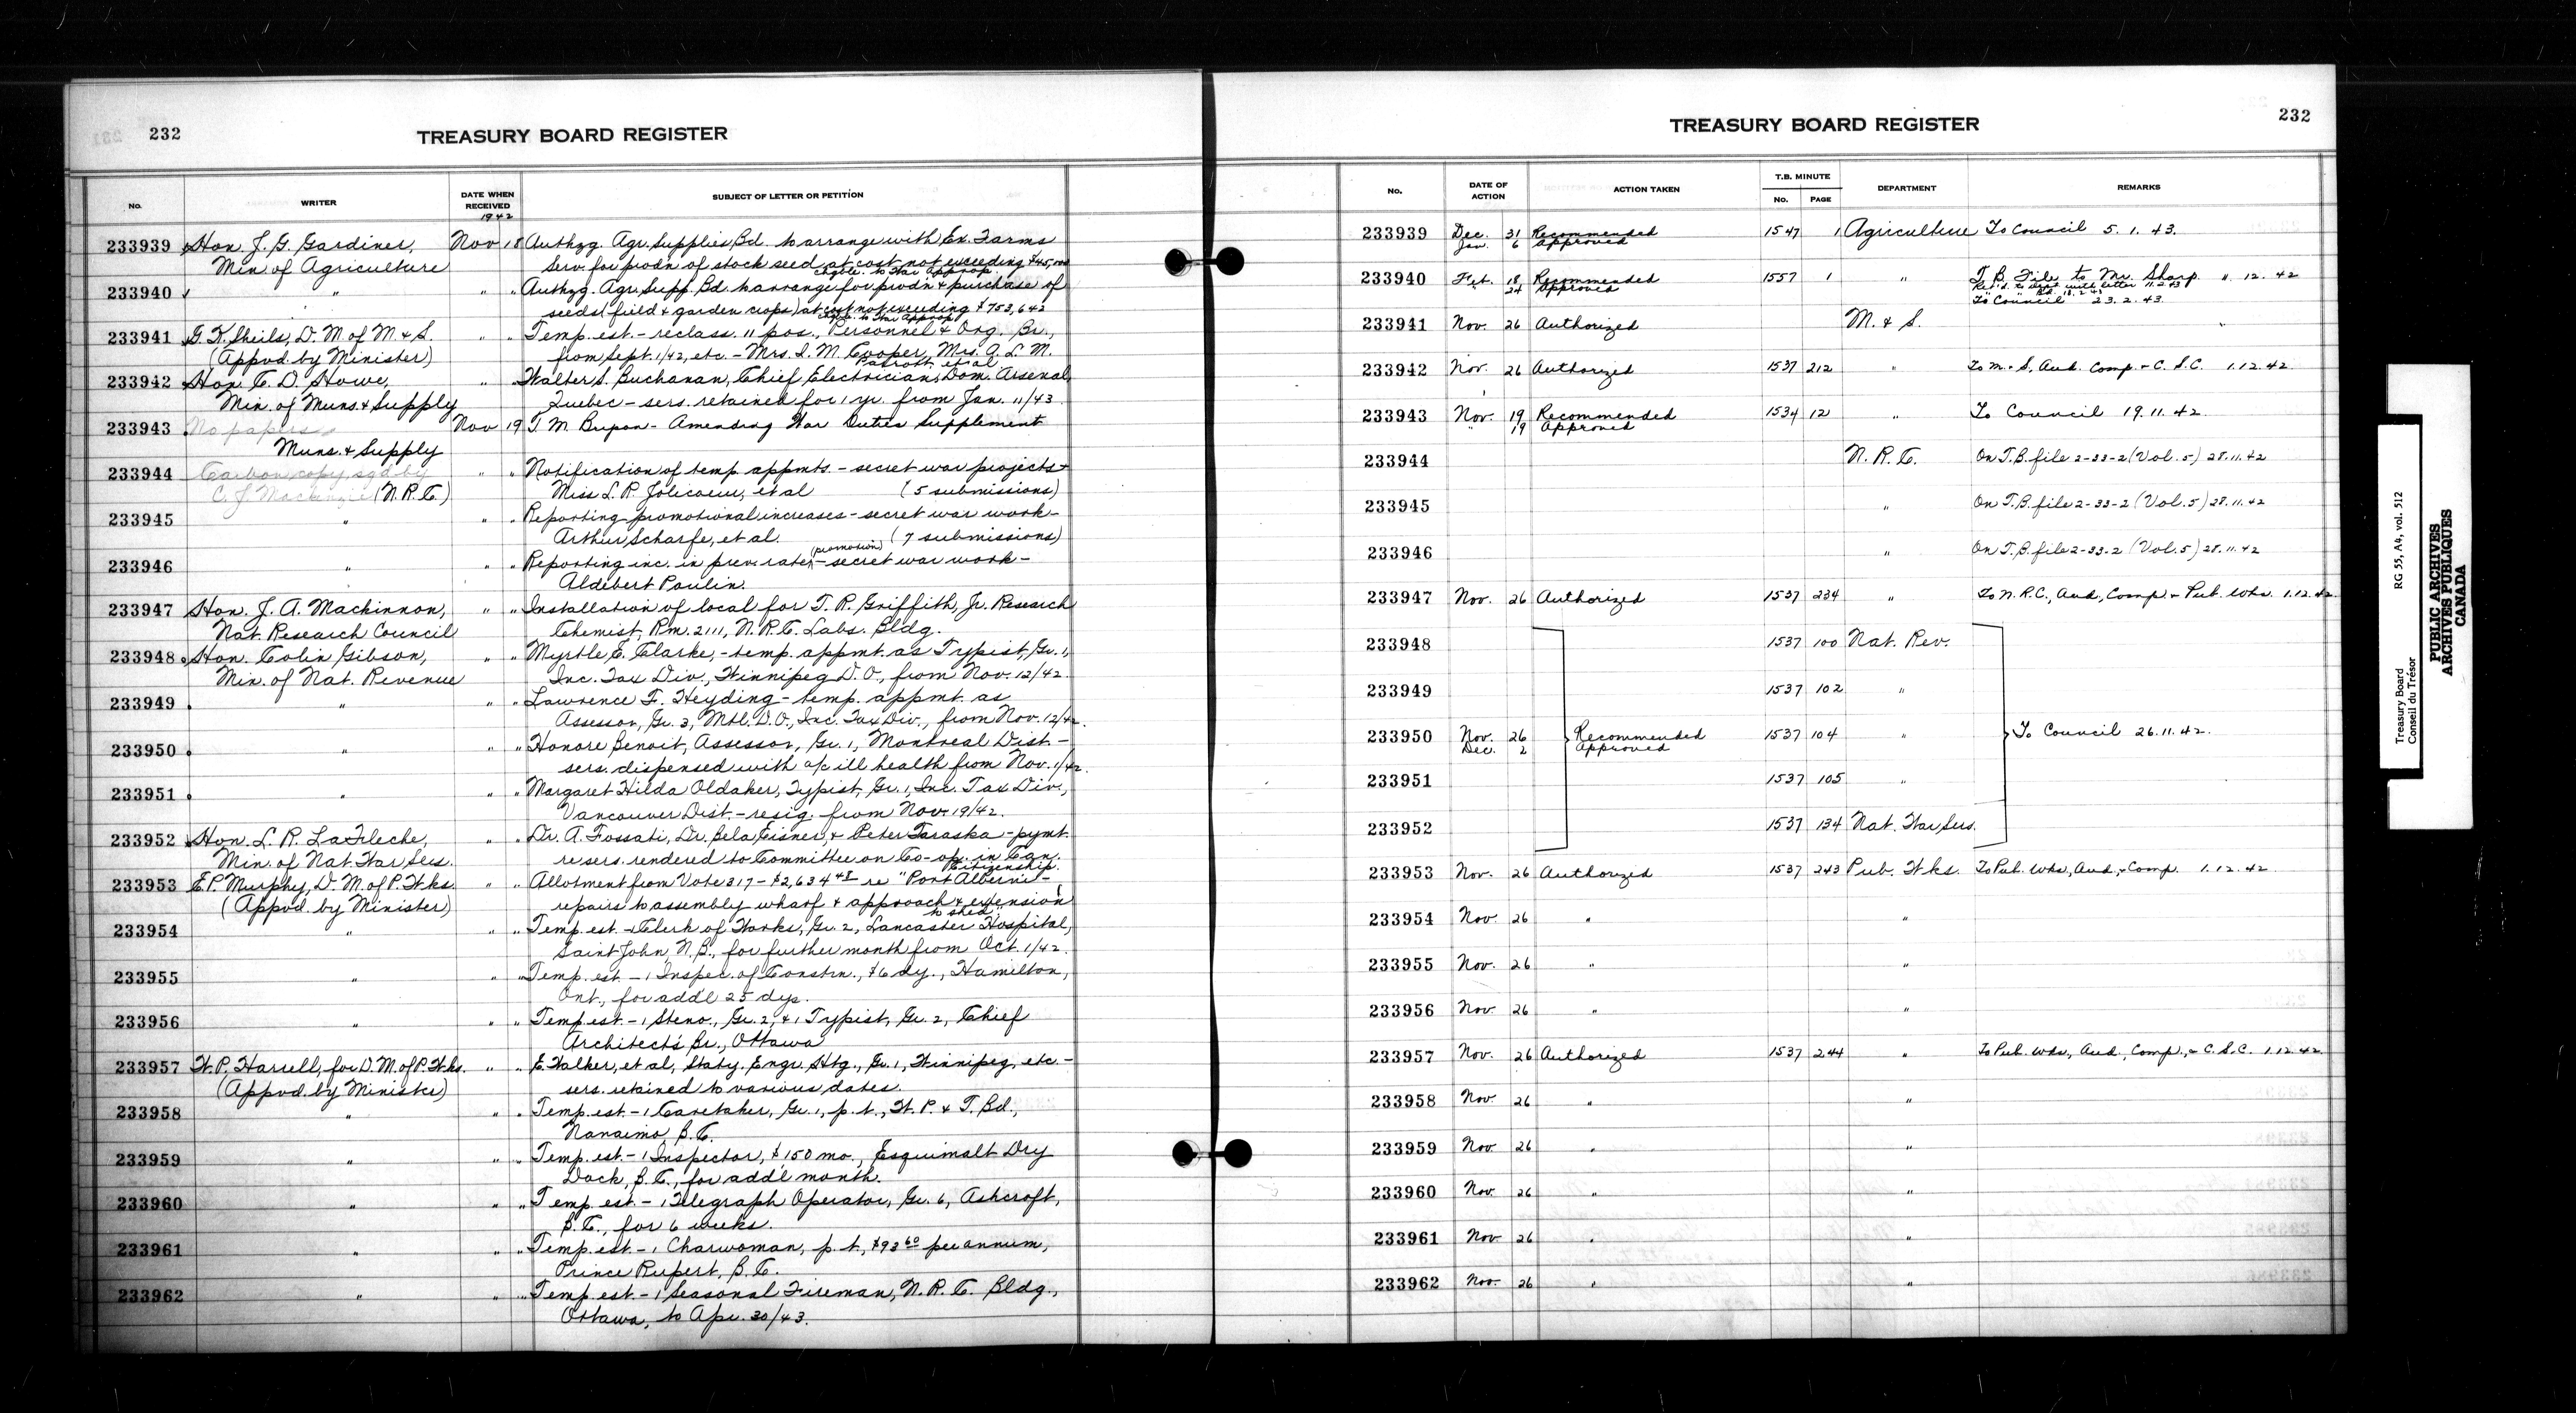 232
TREASURY BOARD REGISTER
No.
WRITER
DATE WHEN RECEIVED
1942
SUBJECT OF LETTER OR PETITION
233939 Hon. J. G. Gardiner, Nov 18 Authzg. Agr. Supplies Bd. to arrange with Ex. Farms
Min. of Agriculture Serv. for prodn of stock seed at cost not exceeding $45,000
chgble. to War Approp.
233940 " " " Authzg. Agr. Supp. Bd. to arrange for prodn & purchase of
seeds (field & garden crops) at cost not exceeding $753,642
chgble. to War Approp.
233941 G. K. Sheils, D. M. of M. & S. " " Temp. est. - reclass. 11 pos., Personnel & Org. Br.,
(Appvd. by Minister) from Sept. 1/42, etc. - Mrs. I. M. Cooper, Mrs. A. L. M.
Parrott, et al
233942 Hon. C. D. Howe, " " Walter S. Buchanan, Chief Electrician, Dom. Arsenal,
Min. of Muns. & Supply Quebec - sers. retained for 1 yr. from Jan. 11/43.
233943 No papers Nov 19 T. M. - Amending War Duties Supplement
Muns. & Supply
233944 Carbon copy sgd by " " Notification of temp. appmts. - secret war projects -
C. J. Mackenzie (N.R.C.) Miss L. P. Jolicoeur, et al (5 submissions)
233945 " " " Reporting promotional increases - secret war work -
Arthur Scharfe, et al. (7 submissions)
233946 " " " Reporting inc. in prev. rates (promotion) - secret war work -
Aldebert Poulin.
233947 Hon. J. A. Mackinnon, " " Installation of local for T. R. Griffith, Jr. Research
Nat. Research Council Chemist, Rm. 2111, N. R. C. Labs. Bldg.
233948 Hon. Colin Gibson, " " Myrtle E. Clarke, - temp. appmt. as Typist, Gr. 1,
Min. of Nat. Revenue Inc. Tax Div., Winnipeg D. O., from Nov. 12/42.
233949 " " " Lawrence F. Heyding - temp. appmt. as
Assessor, Gr. 3, Mtl. D.O., Inc. Tax Div., from Nov. 12/42.
233950 " " " Honore Benoit, Assessor, Gr. 1, Montreal Dist. -
sers. dispensed with a/c ill health from Nov. 1/42.
233951 " " " Margaret Hilda Oldaker, Typist, Gr. 1, Inc. Tax Div.,
Vancouver Dist. - resig. from Nov. 19/42.
233952 Hon. L. R. LaFleche, " " Dr. A. Fossati, Dr. Bela Eisner, & Peter Taraska - pymt.
Min. of Nat. War Sers. re sers. rendered to Committee on Co-op. in Can.
Citizenship.
233953 E. P. Murphy, D. M. of P. Wks. " " Allotment from Vote 317 - $2,634.48 re "Port Alberni -
(Appvd. by Minister) repairs to assembly wharf & approach & extension
to shed"
233954 " " " Temp. est. - 1 Clerk of Works, Gr. 2, Lancaster Hospital,
Saint John, N. B., for further month from Oct. 1/42.
233955 " " " Temp. est. - 1 Inspec. of Constrn., $6 dy., Hamilton,
Ont., for addl 25 dys.
233956 " " " Temp. est. - 1 Steno., Gr. 2, & 1 Typist, Gr. 2, Chief
Architect's Br., Ottawa
233957 W. P. Harrell, for D. M. of P. Wks. " " E. Walker, et al, Staty. Engr. Htg., Gr. 1, Winnipeg, etc. -
(Appvd. by Minister) sers. retained to various dates.
233958 " " " Temp. est. - 1 Caretaker, Gr. 1, p.t., W. P. & T. Bd.,
Nanaimo, B. C.
233959 " " " Temp. est. - 1 Inspector, $150 mo., Esquimalt Dry
Dock, B. C., for addl month.
233960 " " " Temp. est. - 1 Telegraph Operator, Gr. 6, Ashcroft,
B. C., for 6 weeks.
233961 " " " Temp. est. - 1 Charwoman, p.t., $93.60 per annum,
Prince Rupert, B. C.
233962 " " " Temp. est. - 1 Seasonal Fireman, N. R. C. Bldg.,
Ottawa, to Apr. 30/43.
TREASURY BOARD REGISTER
232
No.
DATE OF ACTION
ACTION TAKEN
T.B. MINUTE
No. PAGE
DEPARTMENT
REMARKS
233939 Dec. 31 Recommended 1547 1 Agriculture To Council 5.1.43.
Jan. 6 Approved
233940 Feb. 18 Recommended 1557 1 " T. B. File to Mr. Sharp " 12.42
24 Approved Ret'd. to dept. with letter 11.2.43
To Council 23.2.43.
233941 Nov. 26 Authorized M. & S.
233942 Nov. 26 Authorized 1537 212 " To M. & S, Aud. Comp. & C.S.C. 1.12.42.
233943 Nov. 19 Recommended 1534 12 " To Council 19.11.42.
" 19 Approved
233944 N. R. C. On T.B. file 2-33-2 (Vol. 5) 28.11.42
233945 " On T.B. file 2-33-2 (Vol. 5) 28.11.42
233946 " On T.B. file 2-33-2 (Vol. 5) 28.11.42
233947 Nov. 26 Authorized 1537 234 " To N.R.C., Aud., Comp. & Pub. Wks. 1.12.42.
233948 1537 100 Nat. Rev.
233949 1537 102 "
233950 Nov. 26 Recommended 1537 104 " To Council 26.11.42.
Dec. 2 Approved
233951 1537 105 "
233952 1537 134 Nat. War Sers.
233953 Nov. 26 Authorized 1537 243 Pub. Wks. To Pub. Wks, Aud., & Comp. 1.12.42.
233954 Nov. 26 " "
233955 Nov. 26 " "
233956 Nov. 26 " "
233957 Nov. 26 Authorized 1537 244 " To Pub. Wks, Aud., Comp., & C.S.C. 1.12.42
233958 Nov. 26 " "
233959 Nov. 26 " "
233960 Nov. 26 " "
233961 Nov. 26 " "
233962 Nov. 26 " "
Treasury Board
Conseil du Trésor
RG 55, A4, vol. 512
PUBLIC ARCHIVES
ARCHIVES PUBLIQUES
CANADA